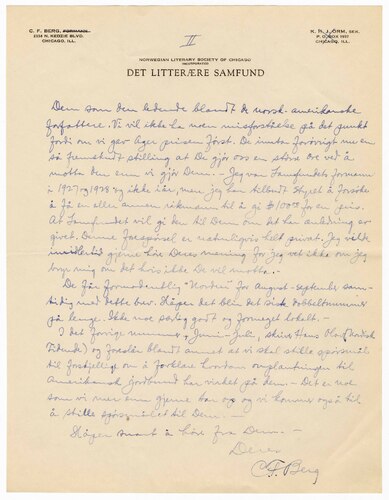 C. F. BERG, FORMANN.
2254 N. KEDZIE BLVD.
CHICAGO, ILL.
II
K. B. J. ORM, SEK.
CHICAGO, ILL.
NORWEGIAN LITERARY SOCIETY OF CHICAGO
INCORPORATED
DET LITTERÆRE SAMFUND
Dem som den ledende blandt de norsk-amerikanske
forfattere. Vi vil ikke ha noen misforståelse på det punkt
fordi om vi gav Ager prisen først. De inntar forøvrigt nu en
så fremskudt stilling at De gjør oss en større ære ved å
motta den enn vi gjør Dem. - Jeg var Samfundets formann
i 1927 og 1928 og ikke iår, men jeg har tilbudt Styret å forsøke
å få en eller annen rikmann til å gi $100.00 for en pris.
At Samfundet vil gi den til Dem om det har anledning er
givet. Denne forespørsel er naturligvis helt privat. Jeg vilde
imidlertid gjerne høre Deres mening for jeg vet ikke om jeg
bryr mig om det hvis ikke De vil motta.
De får formodentlig "Norden" for August-september sam-
tidig med dette brev. Håper det blir det siste dobbeltnummer
på lenge. Ikke noe særlig godt og formeget lokalt. -
I det forrige nummer, Juni-Juli, skrev Hans Olav (Nordisk
Tidende) og foreslår blandt annet at vi skal stille spørsmål
til forskjellige om å forklare hvordan omplantningen til
Amerikansk jordbund har virket på dem. - Det er noe
som vi mer enn gjerne tar op og vi kommer også til
å stille spørsmålet til Dem. -
Håper snart å høre fra Dem. -
Deres
C. F. Berg